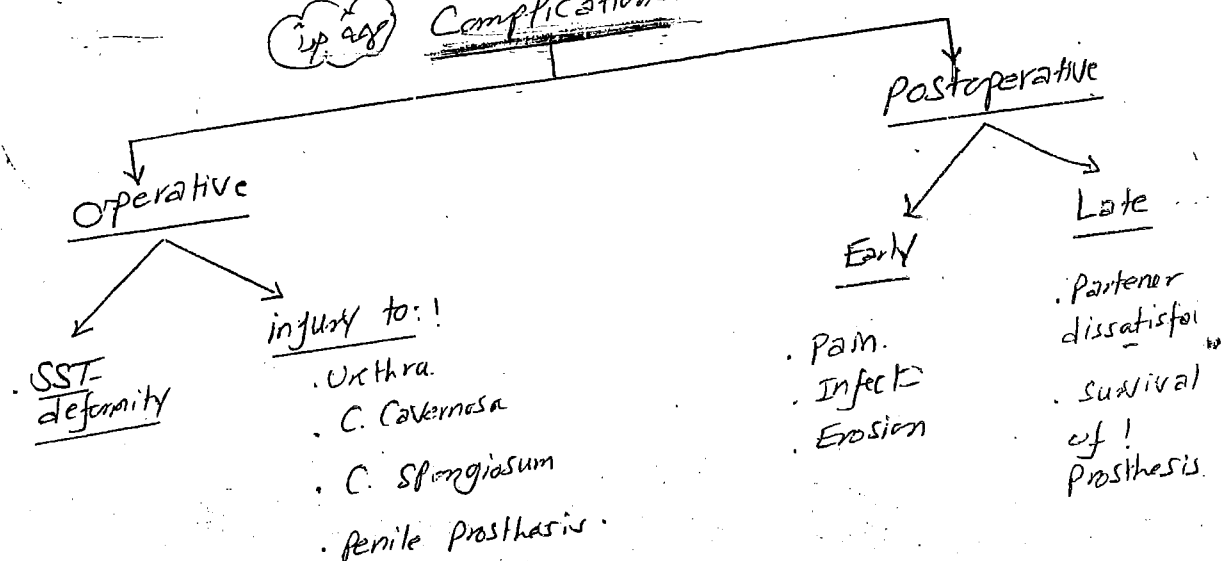 Complication
Operative
Postoperative
SST
deformity
injury to: !
. Urethra.
. C. Cavernosa
. C. Spongiosum
. Penile Prosthesis.
Early
. Pain.
. Infect
. Erosion
Late
. Partener
dissatisfai
. Survival
of !
Prosthesis.